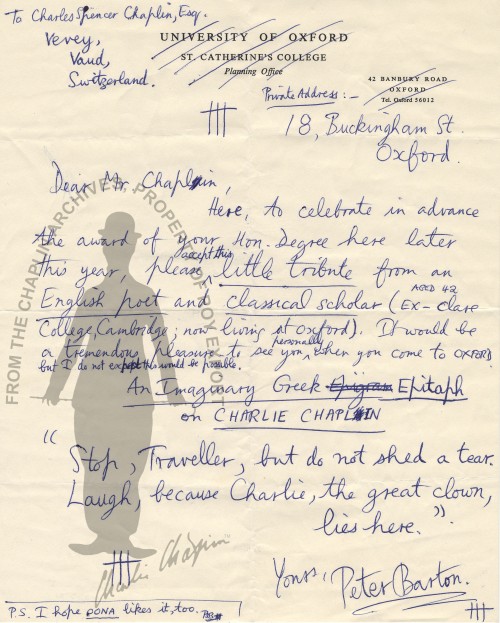 To Charles Spencer Chaplin, Esq.
Vevey,
Vaud,
Switzerland.
UNIVERSITY OF OXFORD
ST. CATHERINE'S COLLEGE
Planning Office
42 BANBURY ROAD
OXFORD
Tel. Oxford 56012
Private Address :-
18, Buckingham St.
Oxford.
Dear Mr. Chaplin,
Here, to celebrate in advance
the award of your Hon. Degree here later
this year, please accept this little tribute from an
English poet and classical scholar (AGED 42 Ex-Clare
College, Cambridge; now living at Oxford). It would be
a tremendous pleasure to see you personally, when you come to OXFORD,
but I do not expect this would be possible.
An Imaginary Greek Epigram Epitaph
on CHARLIE CHAPLIN
"Stop, Traveller, but do not shed a tear.
Laugh, because Charlie, the great clown,
lies here."
Yours,
Peter Barton.
P.S. I hope OONA likes it, too.
FROM THE CHAPLIN ARCHIVES, PROPERTY OF ROY EXPORT
Charlie Chaplin